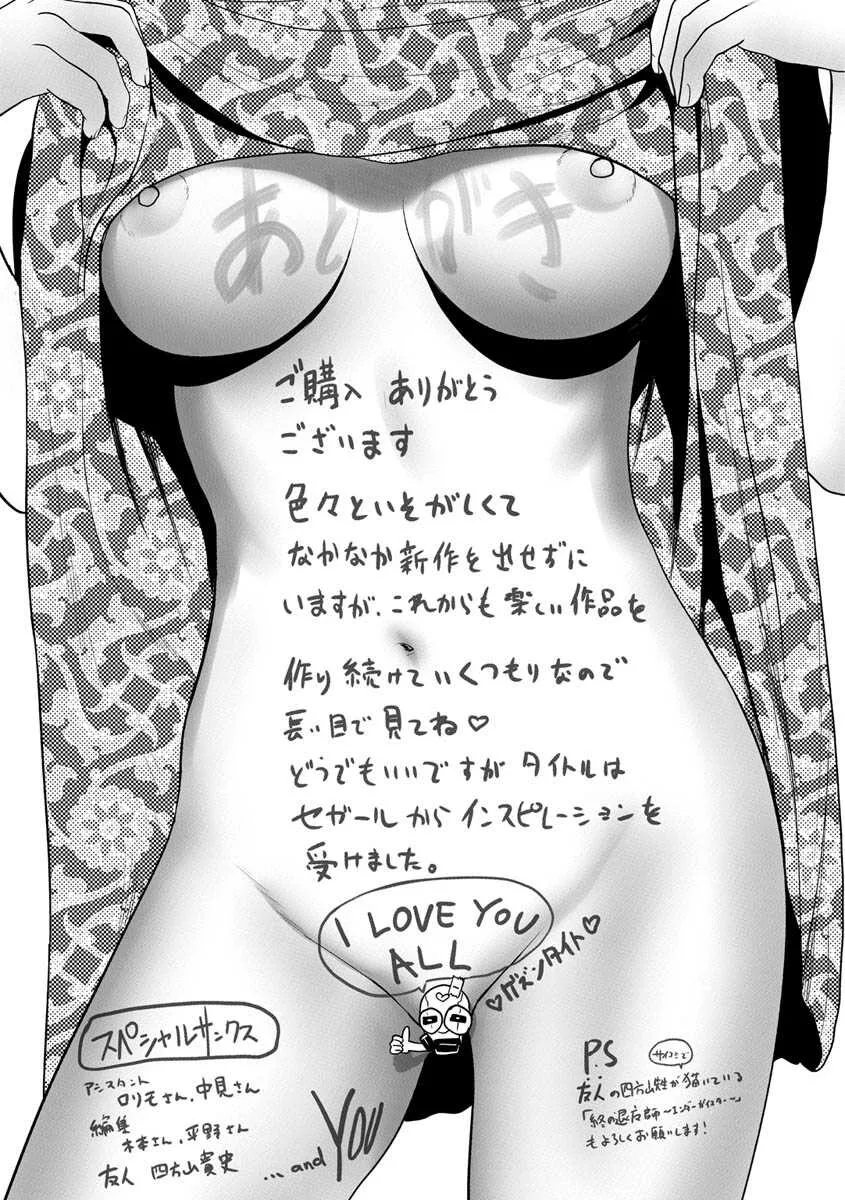 あとがき
ご購入 ありがとう
ございます
色々といそがしくて
なかなか新作を出せずに
いますが、これからも楽しい作品を
作り続けていくつもりなので
長い目で見てね♡
どうでもいいですが タイトルは
セガールから インスピレーションを
受けました。
I LOVE YOU
ALL
♡ゲズンタイト♡
スペシャルサンクス
アシスタント
ロリモさん、中見さん
編集
本さん、平野さん
友人 四方山貴史
...and YOU
P.S
サイコミで
友人の四方山が描いている
「終の退魔師〜エンダーガイスター〜」
もよろしくお願いします!